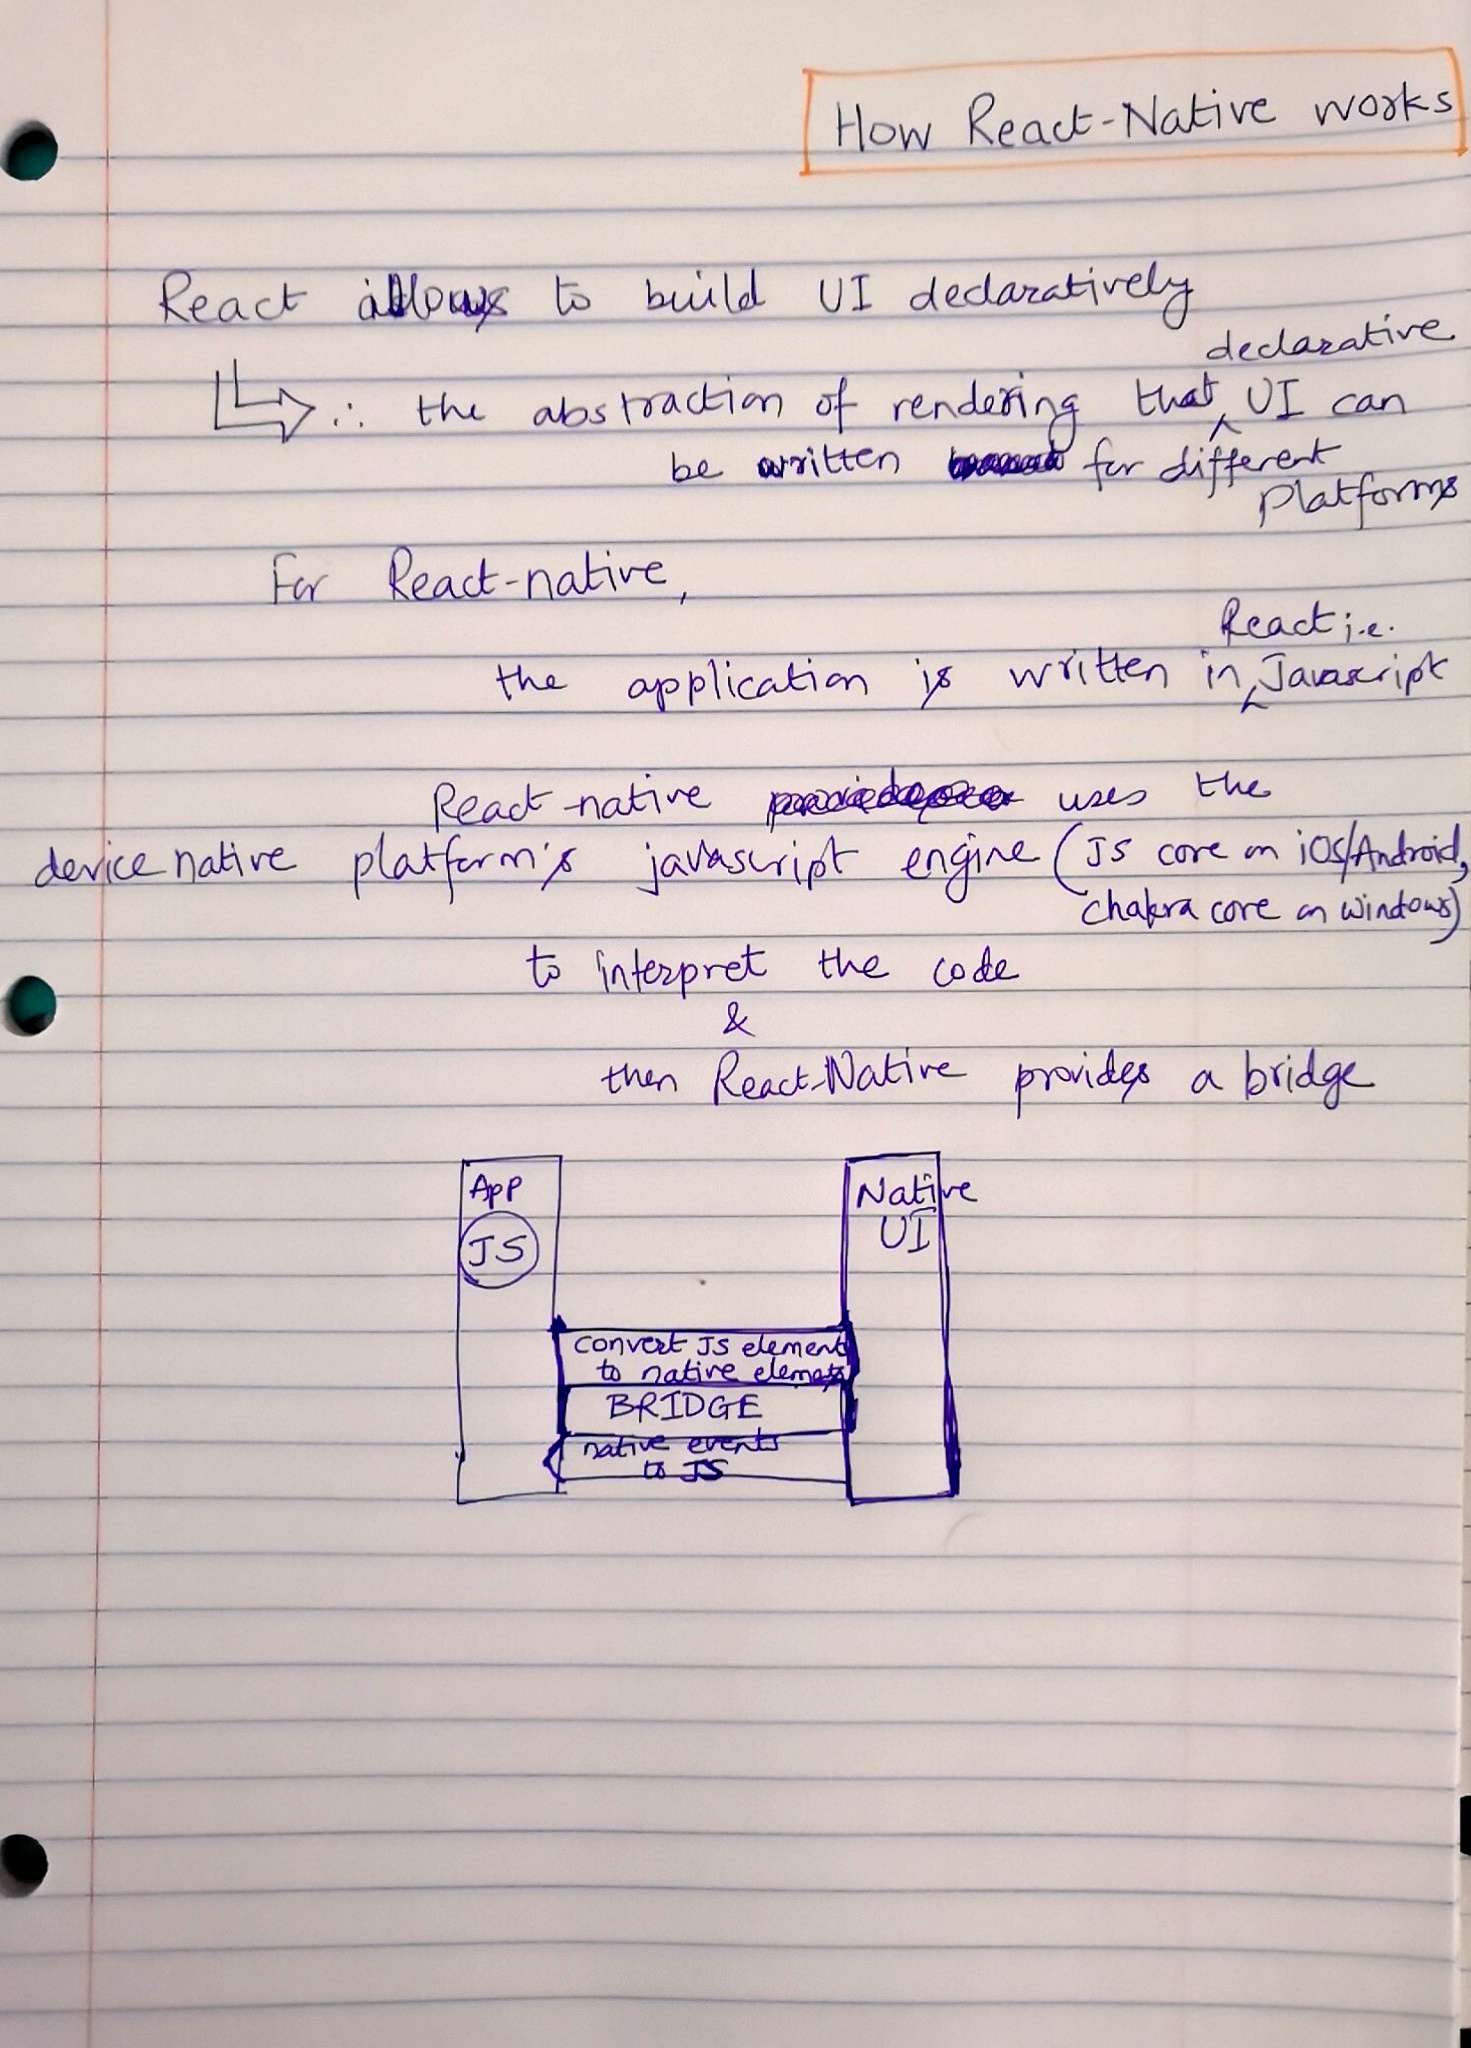 How React-Native works
React allows to build UI declaratively
∴ the abstraction of rendering that declarative UI can
be written for different
Platforms
For React-native,
the application is written in React i.e. Javascript
React-native uses the
device native platform's javascript engine (JS core on iOS/Android,
chakra core on windows)
to interpret the code
&
then React-Native provides a bridge
App
JS
Native
UI
convert JS element
to native elements
BRIDGE
native events
to JS